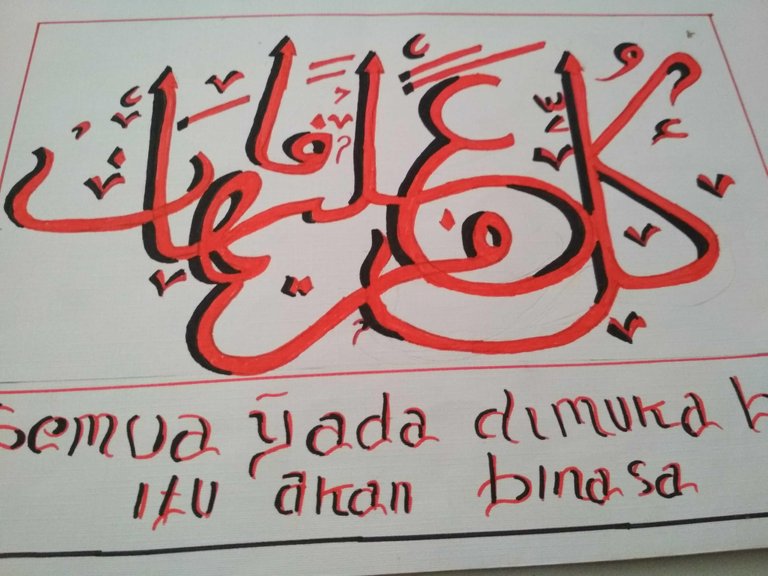 كل من عليها فان
Semua ỹada dimuka b
itu akan binasa